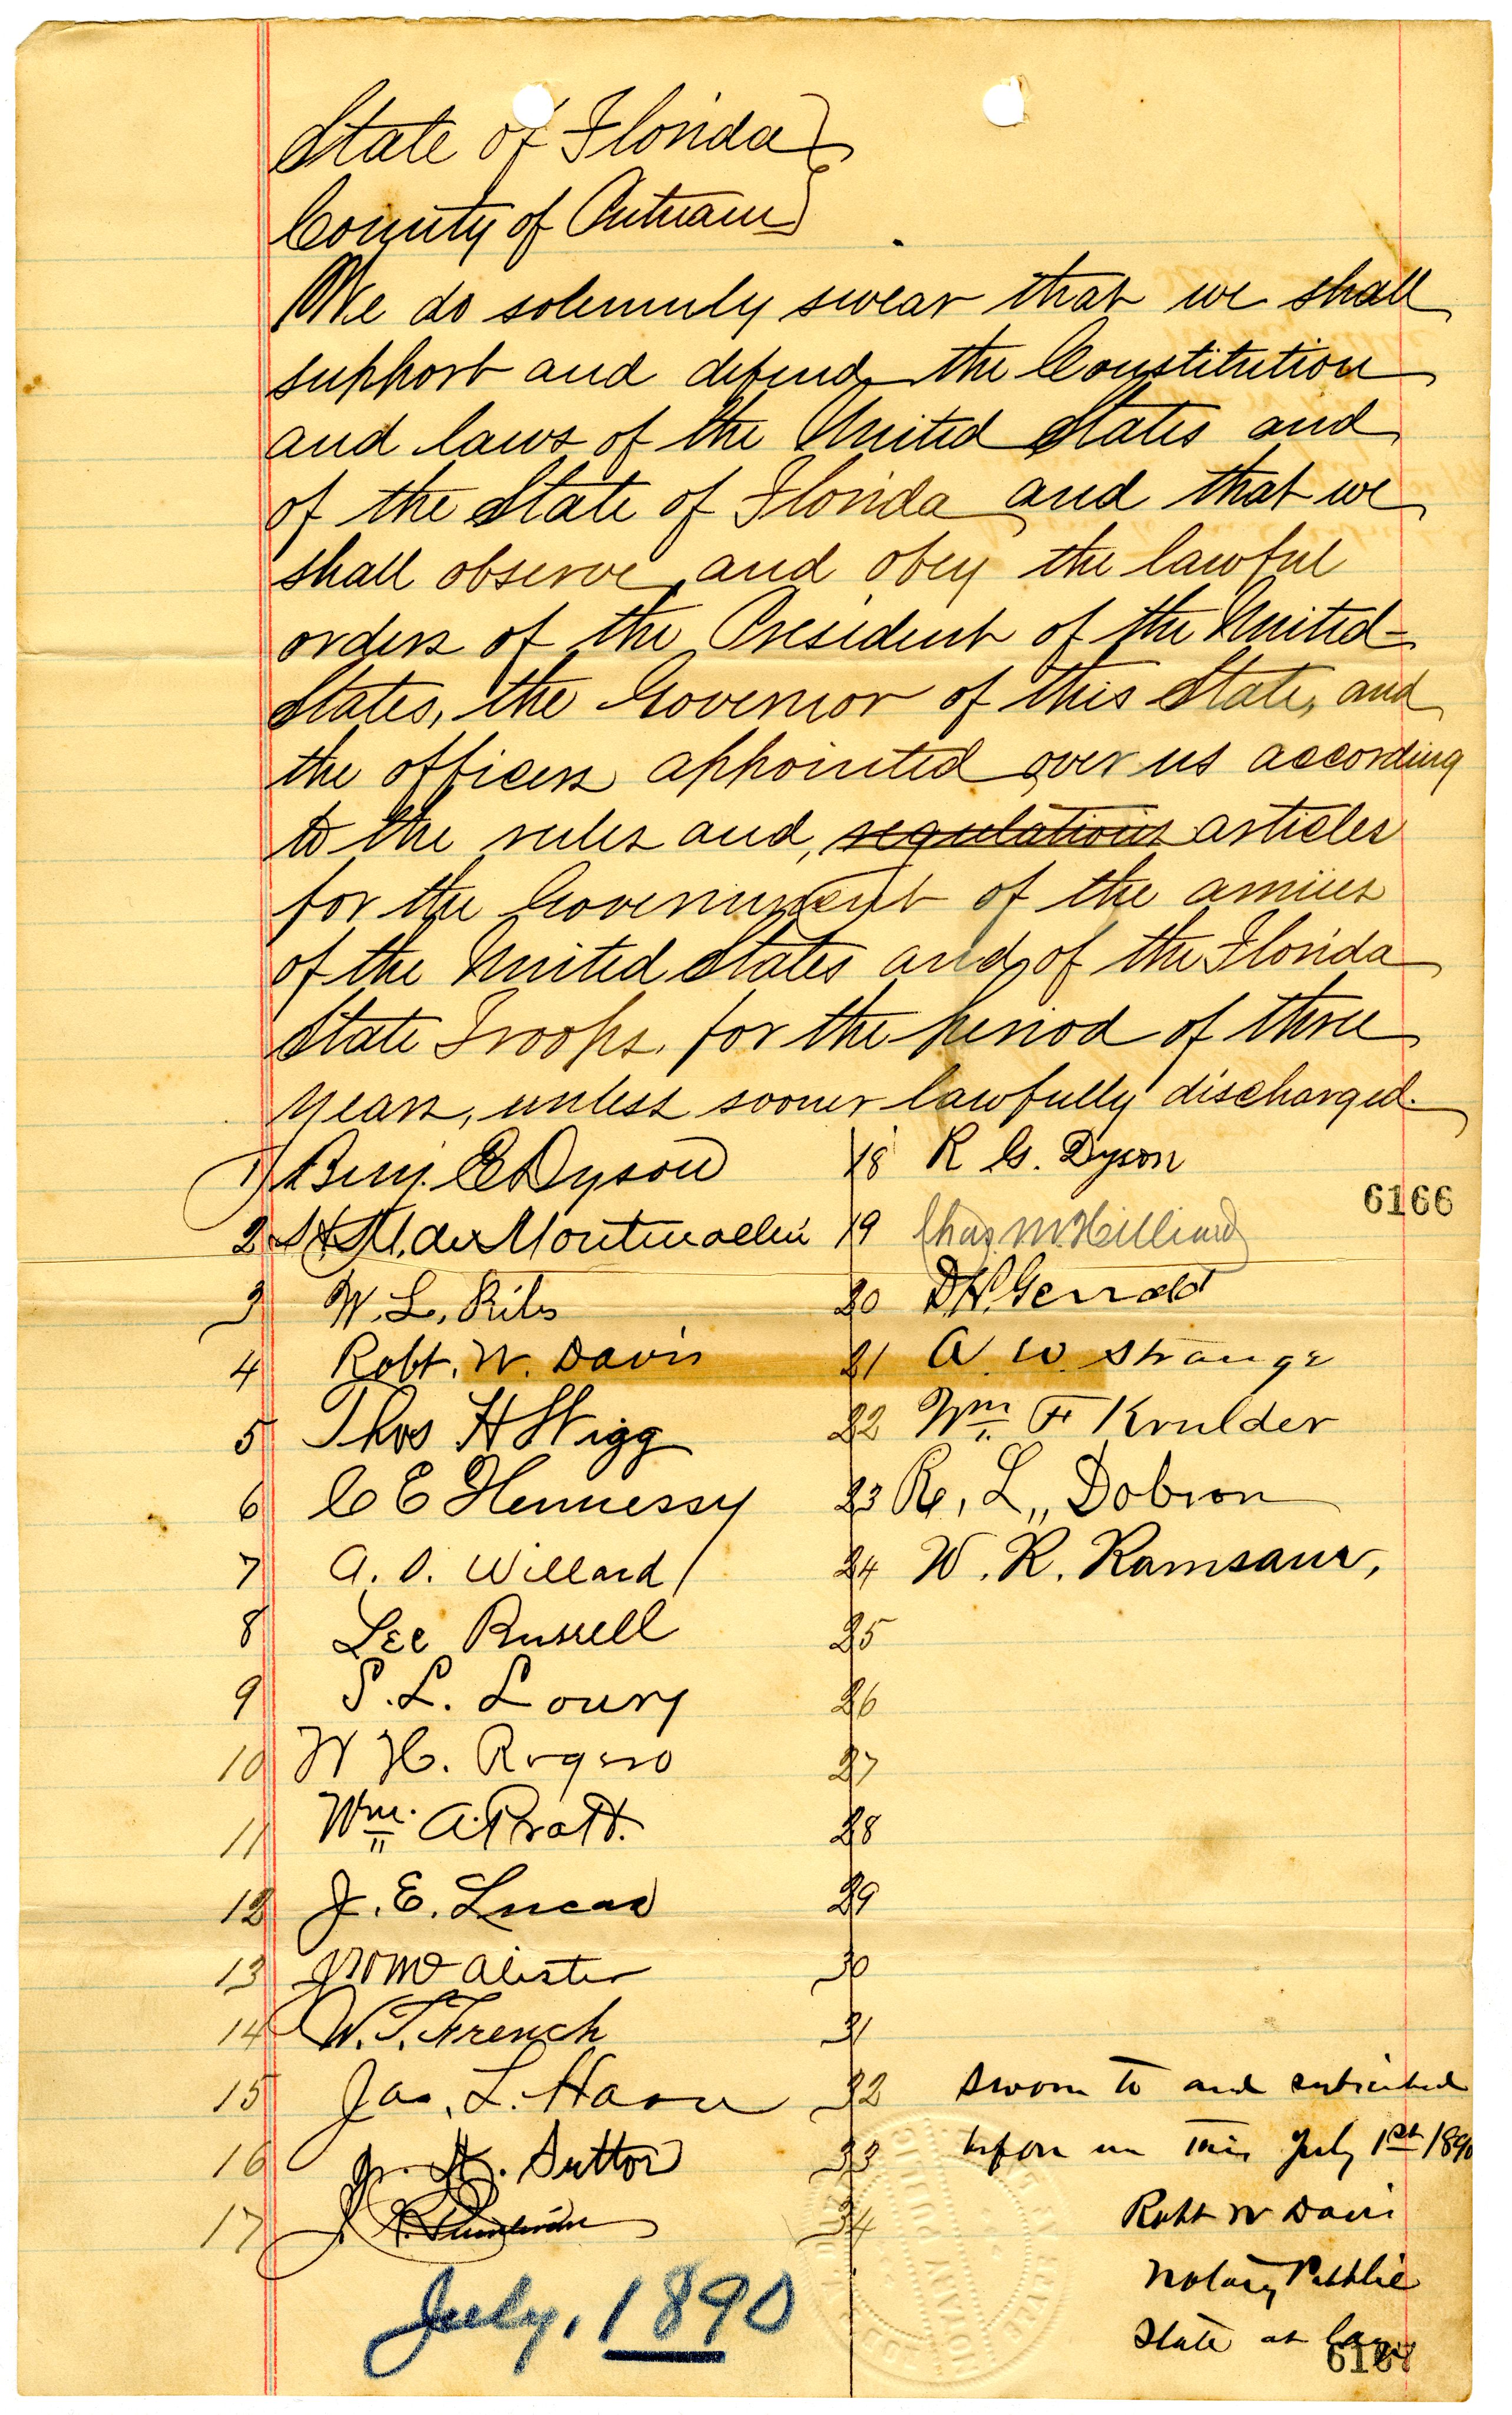 State of Florida }
County of Putnam }
We do solemnly swear that we shall
support and defend the Constitution
and laws of the United States and
of the State of Florida and that we
shall observe and obey the lawful
orders of the President of the United
States, the Governor of this State, and
the officers appointed over us according
to the rules and, regulations articles
for the Government of the armies
of the United States and of the Florida
State Troops. for the period of three
years, unless sooner lawfully discharged.
1) Benj. E Dyson
2
3 W. L.
4 Robt. W. Davis
5 Thos H Wigg
6 C E Hennessy
7 A. D. Willard
8 Lee Russell
9 S. L. Loury
10 W H. Rogero
11 Wm. A. Pratt.
12 J. E. Lucas
13 Alister
14 W. T. French
15 Jas. L.
16 Sutton
17 J.
18 R G. Dyson
6166
19 Chas. M. Hilliard
20 D H. Gerrald
21 A. W. Strange
22 Wm. F Krulder
23 R. L., Dobson
24 W. R. Ramsaur,
25
26
27
28
29
30
31
32
33
34
Sworn to and subscribed
before me this July 1st 1890
Robt W Davis
Notary Public
State at Large
6167
NOTARY PUBLIC
July, 1890